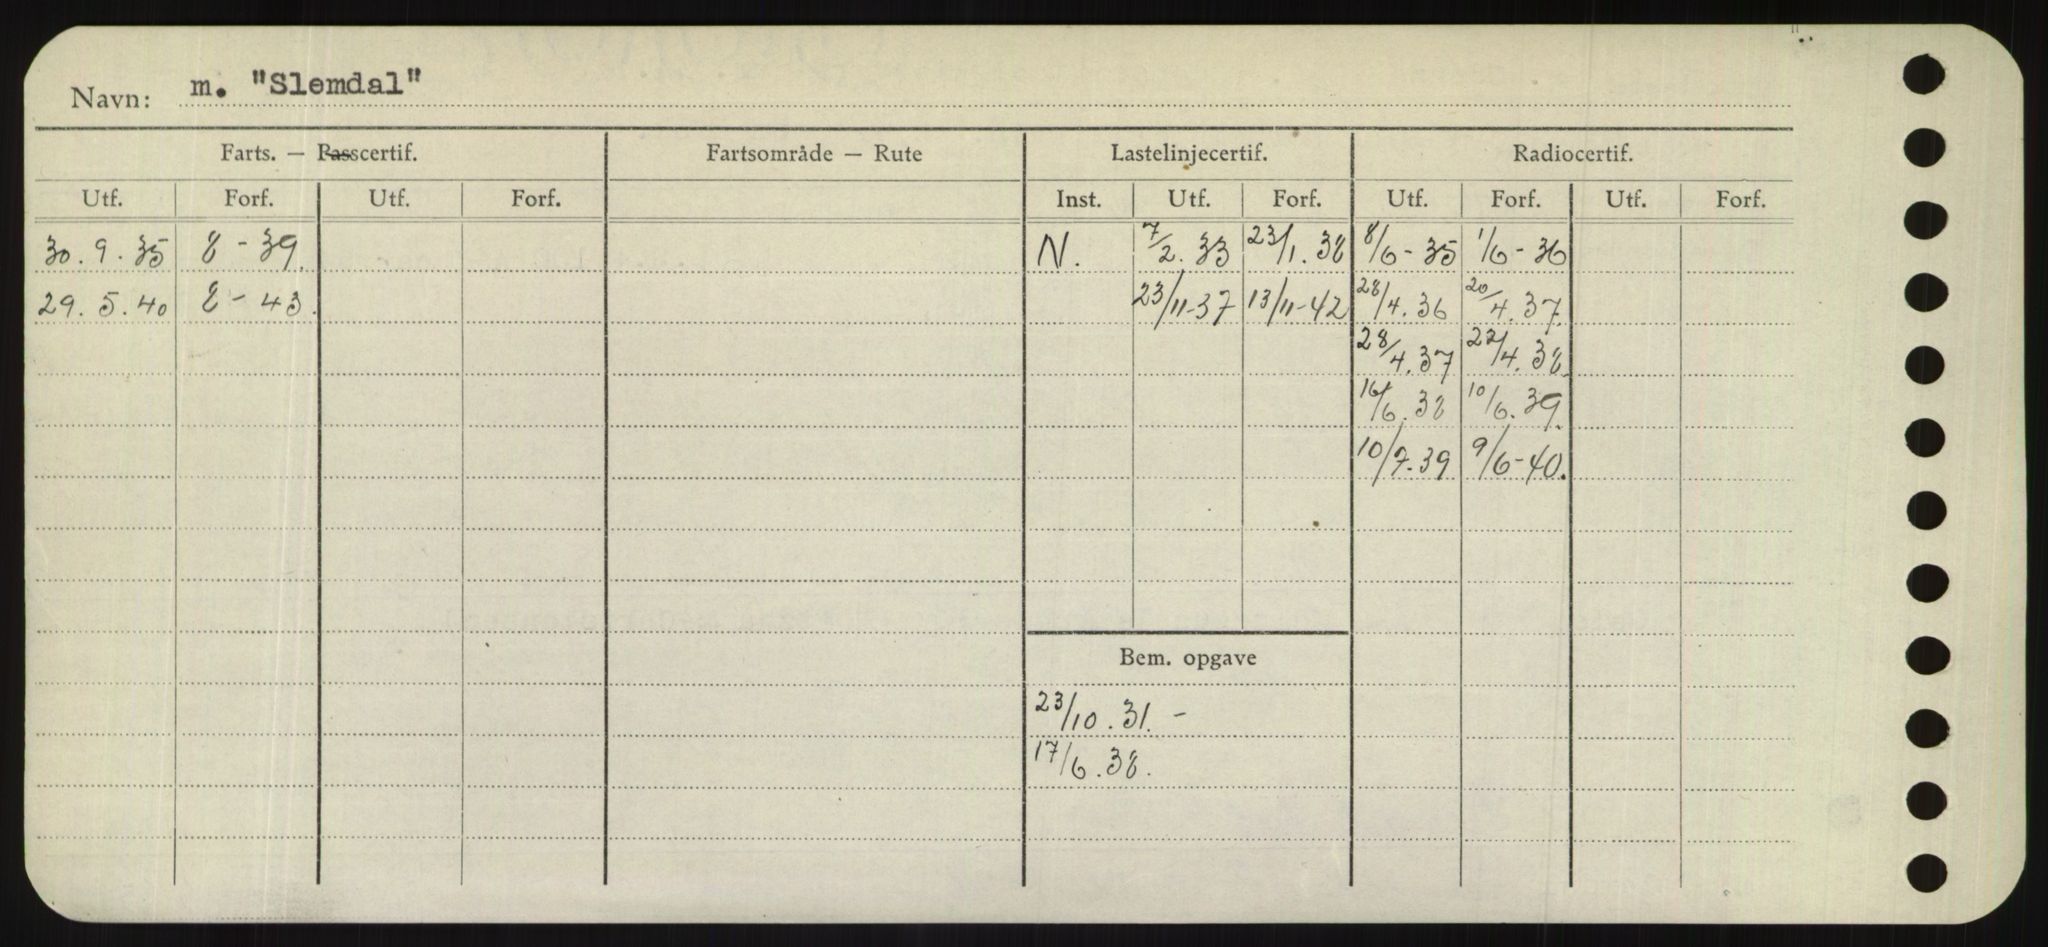 Navn: m. "Slemdal"
Farts. — Passcertif. Fartsområde — Rute Lastelinjecertif. Radiocertif.
Utf. Forf. Utf. Forf. Inst. Utf. Forf. Utf. Forf. Utf. Forf.
30.9.35 8-39. N. 7/2.33 23/1.38 8/6-35 1/6-36
29.5.40 8-43. 23/11-37 13/11-42 28/4.36 20/4.37.
28/4.37 22/4.38.
16/6.38 10/6.39.
10/7.39 9/6-40.
Bem. opgave
23/10.31.-
17/6.38.